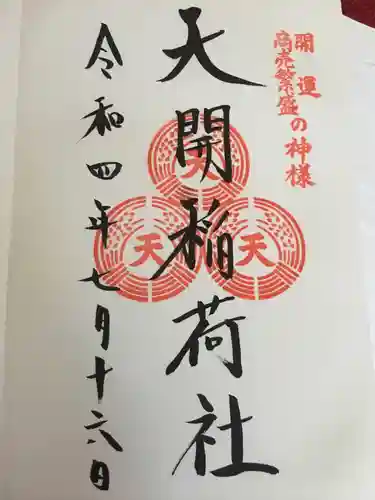 開運
商売繁盛の神様
天開稲荷社
天
天
天
令和四年七月十六日